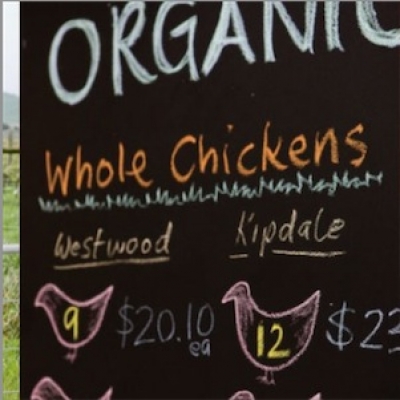 ORGANIC
Whole Chickens
Westwood Kipdale
9 $20.10 ea 12 $23